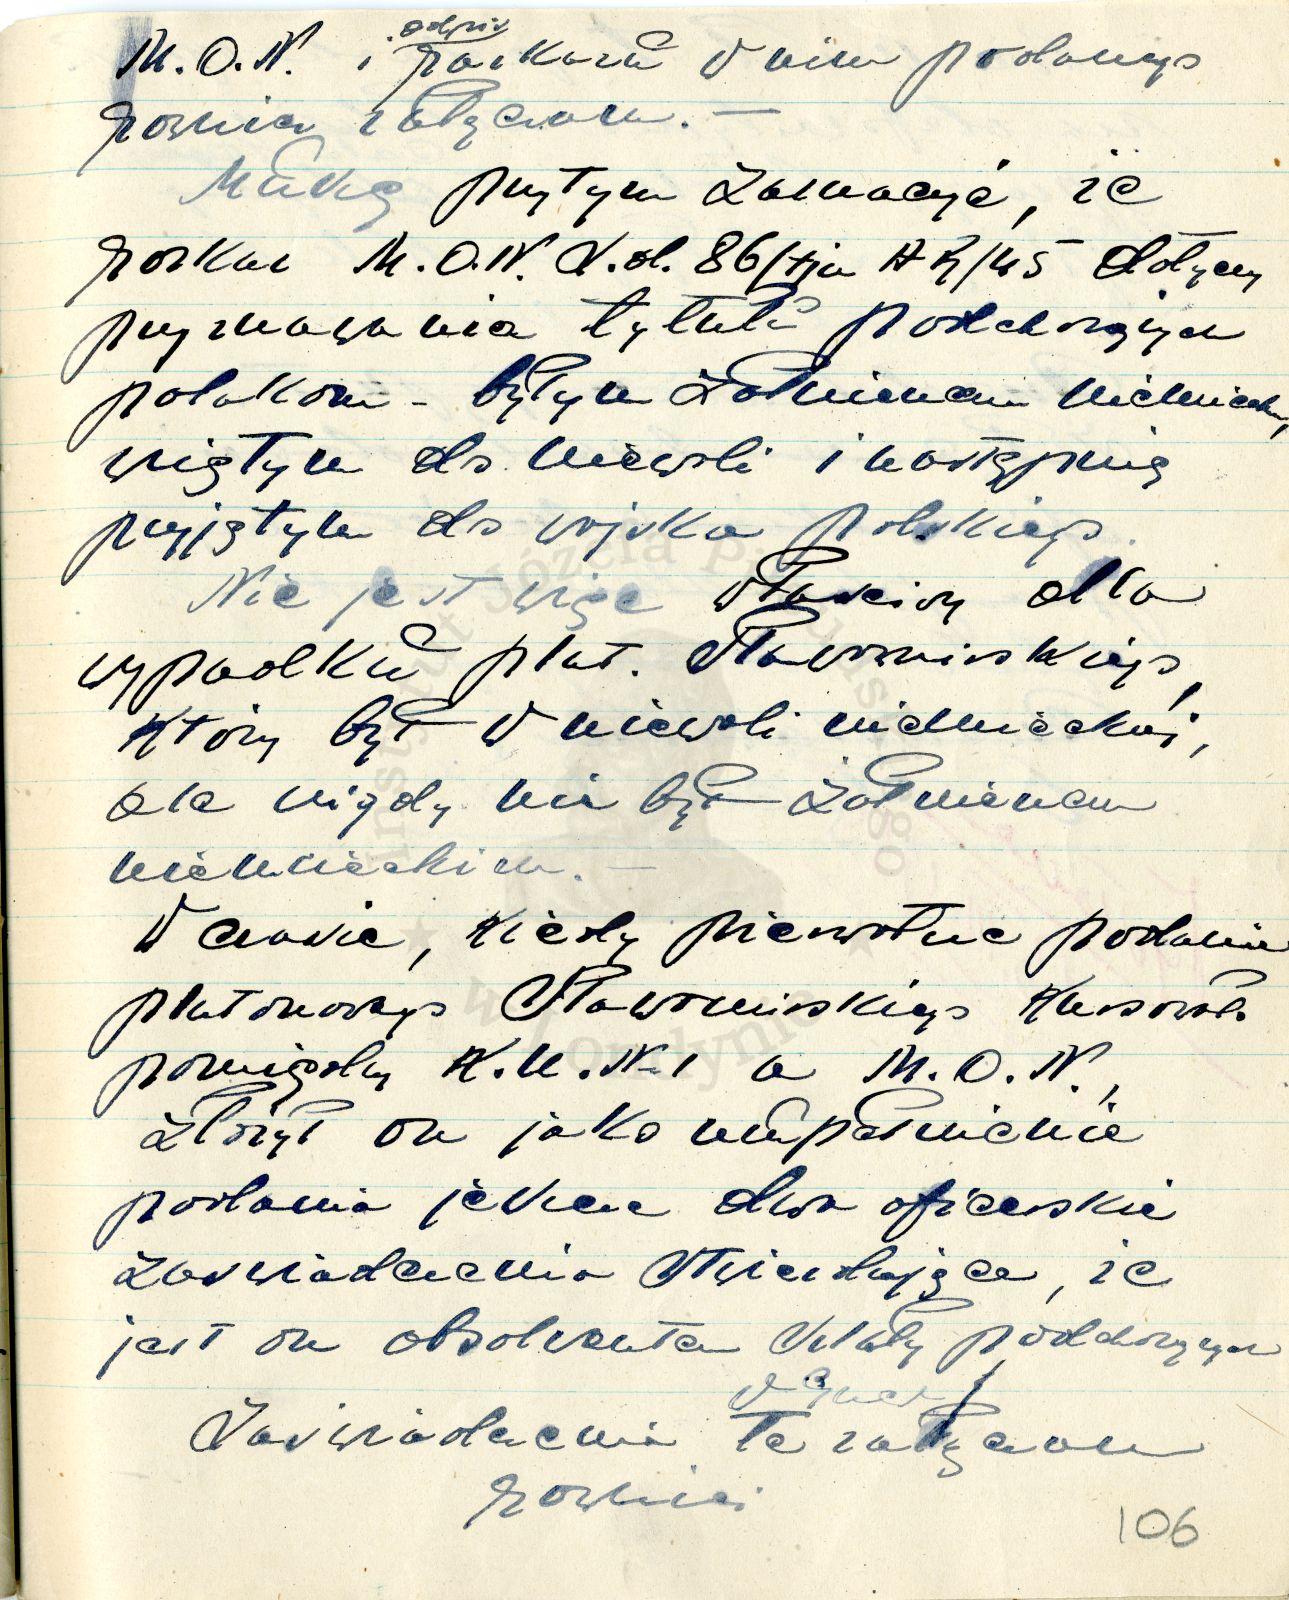 M.O.N. i odpis rozkazu w nim podanego
również załączam. —
Muszę przytym zaznaczyć, że
rozkaz M.O.N. L.dl. 86/tjn AR/45 dotyczy
przyznawania tytułu podchorążych
polakom - byłym żołnierzom niemieckim,
wziętym do niewoli i następnie
przyjętym do wojska polskiego.
Nie jest więc właściwy dla
wypadku plut. Sławomirskiego,
który był w niewoli niemieckiej,
ale nigdy nie był żołnierzem
niemieckim. —
W czasie, kiedy pierwotne podanie
plutonowego Sławomirskiego kursowało
pomiędzy K.U.Nr1 a M.O.N.,
złożył on jako uzupełnienie
podania jeszcze dwa oficerskie
zaświadczenia stwierdzające, że
jest on absolwentem Szkoły podchorążych
Zaświadczenia te załączam
również
106
Instytut Józefa Piłsudskiego
w Londynie